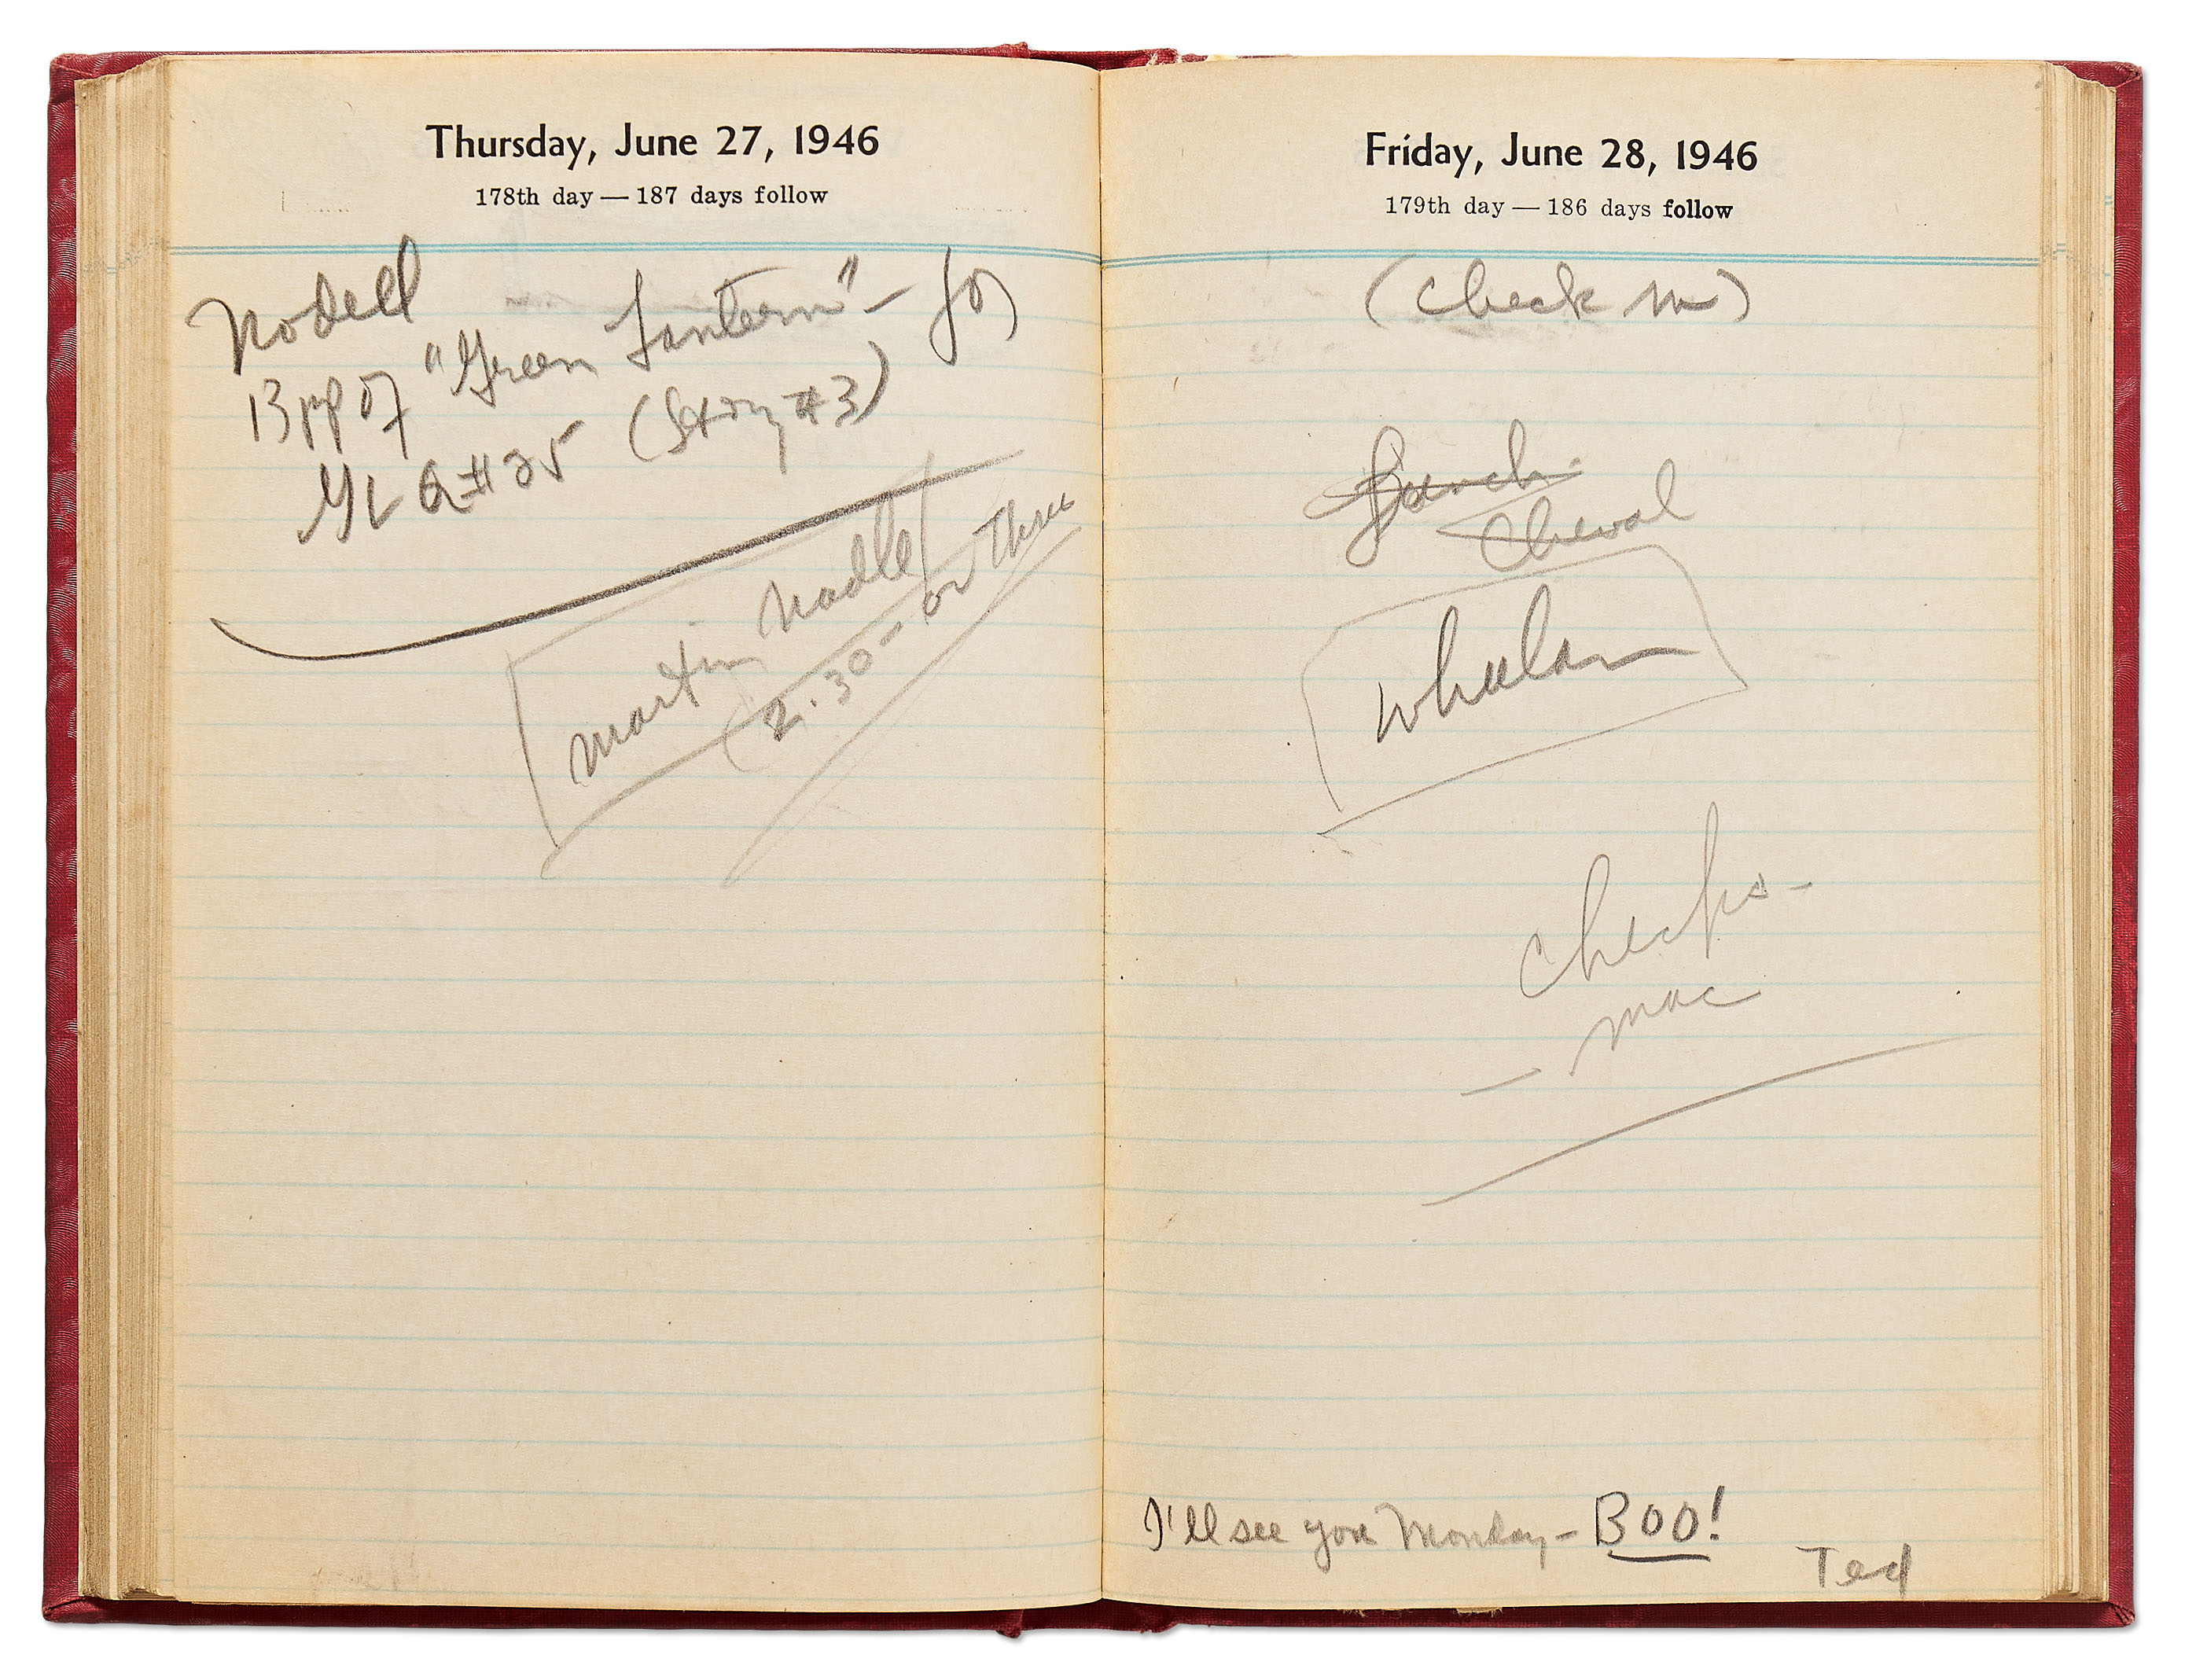 Thursday, June 27, 1946
178th day — 187 days follow
Nodell
13 pp of "Green Lantern" - for
GL Q-#25 (Story #3)
Martin Nadle
(2:30 - on Thurs
Friday, June 28, 1946
179th day — 186 days follow
(Check in)
Lunch
Cheval
Whelan
Checks -
- Mac
I'll see you Monday - BOO!
Ted